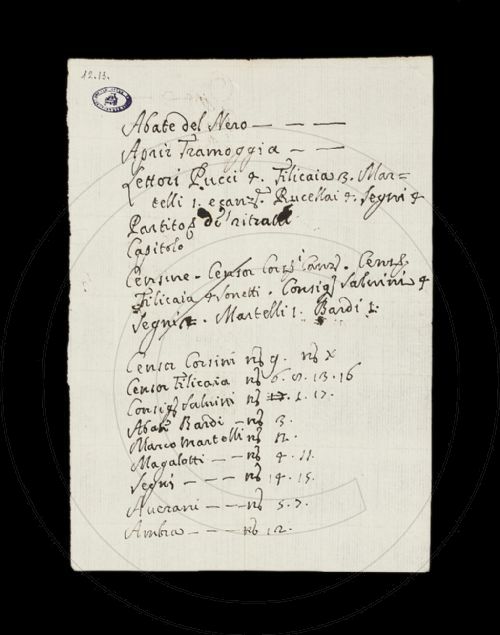 12.13.
Abate del Nero — — —
Aprir Tramoggia — —
Lettori Pucci 4. Filicaia 3. Mar=
telli 1. e canz. Rucellai 4. Segni 4
Partito di ritratti
Capitolo
Censure. Censor Cors Canz. Cens
Filicaia 4 Sonetti. Consig Salvini 4
Segni. Martelli 1. Bardi 1.
Censor Corsini no 9. no X
Censor Filicaia no 6. 8. 13. 16
Consig Salvini no 1. 17.
Abate Bardi — no 3.
Marco Martelli no 12.
Magalotti — — no 4. 11.
Segni — — — no 14. 15.
Averani — — — no 5. 7.
Ambra — — — no 12.